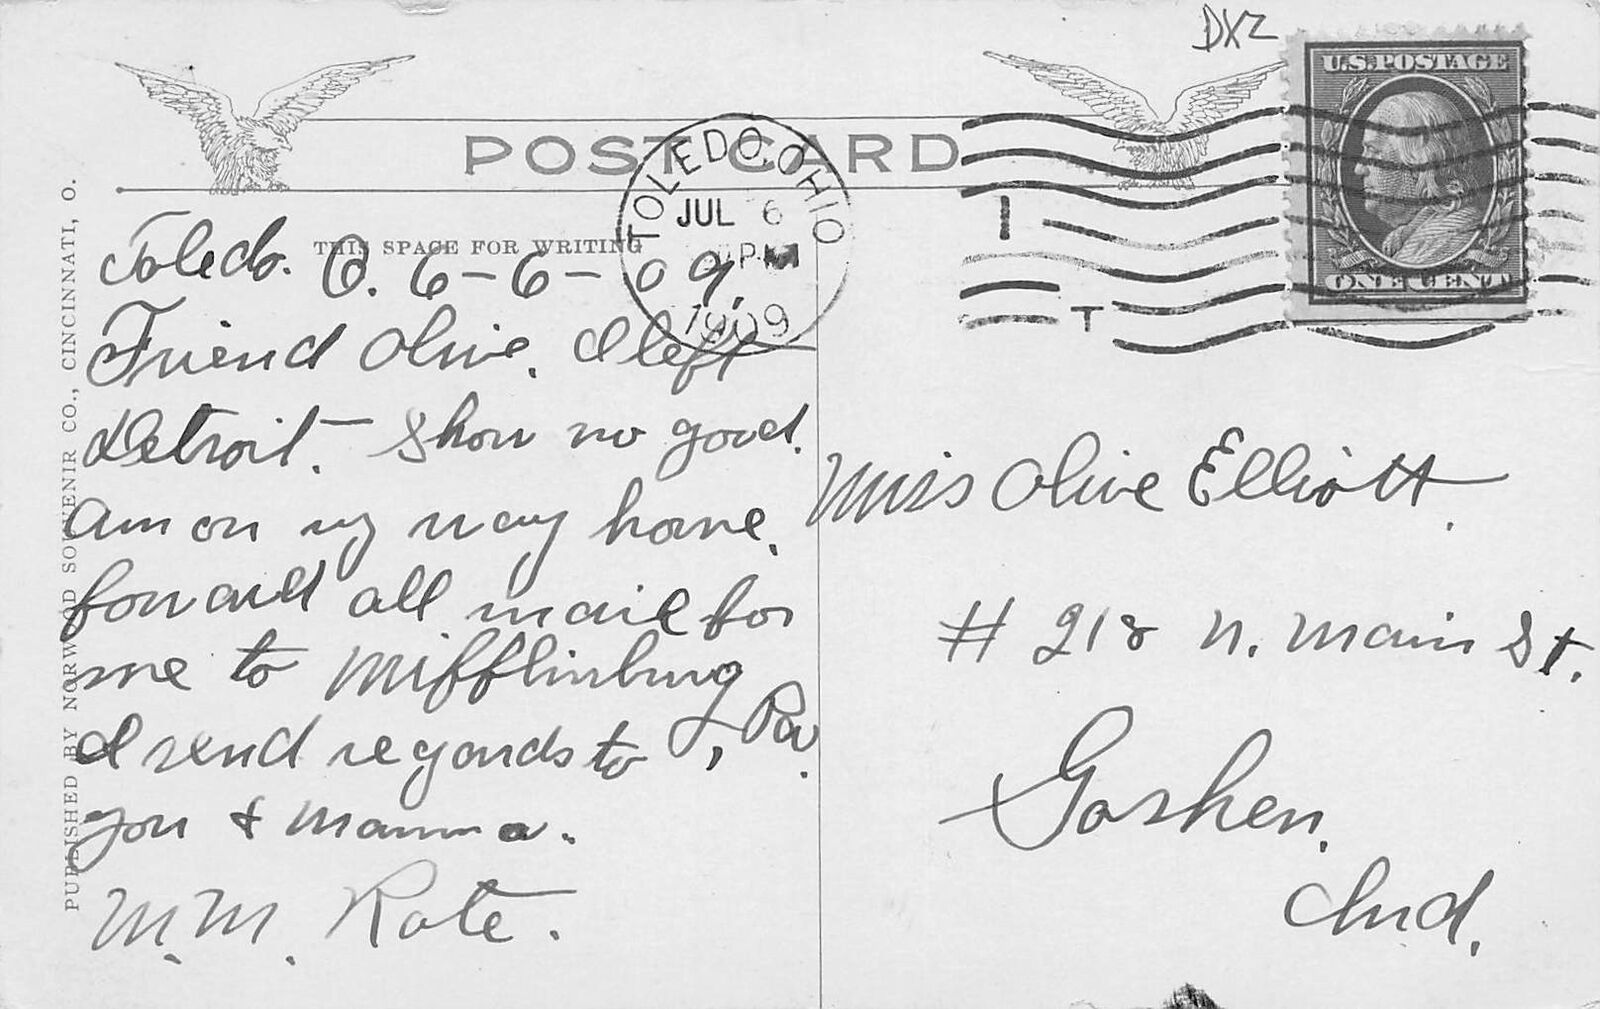 DXZ
U.S. POSTAGE
ONE CENT
POST CARD
TOLEDO, OHIO
JUL 6
PM
1909
I
T
THIS SPACE FOR WRITING
Toledo. O. 6-6-09.
Friend Olive. I left
Detroit. Show no good.
Am on my way home.
forward all mail for
me to Mifflinburg, Pa.
I send regards to
you & Mamma.
M. M. Rote.
Miss Olive Elliott.
# 218 N. Main St.
Goshen.
Ind.
PUBLISHED BY NORWOOD SOUVENIR CO., CINCINNATI, O.